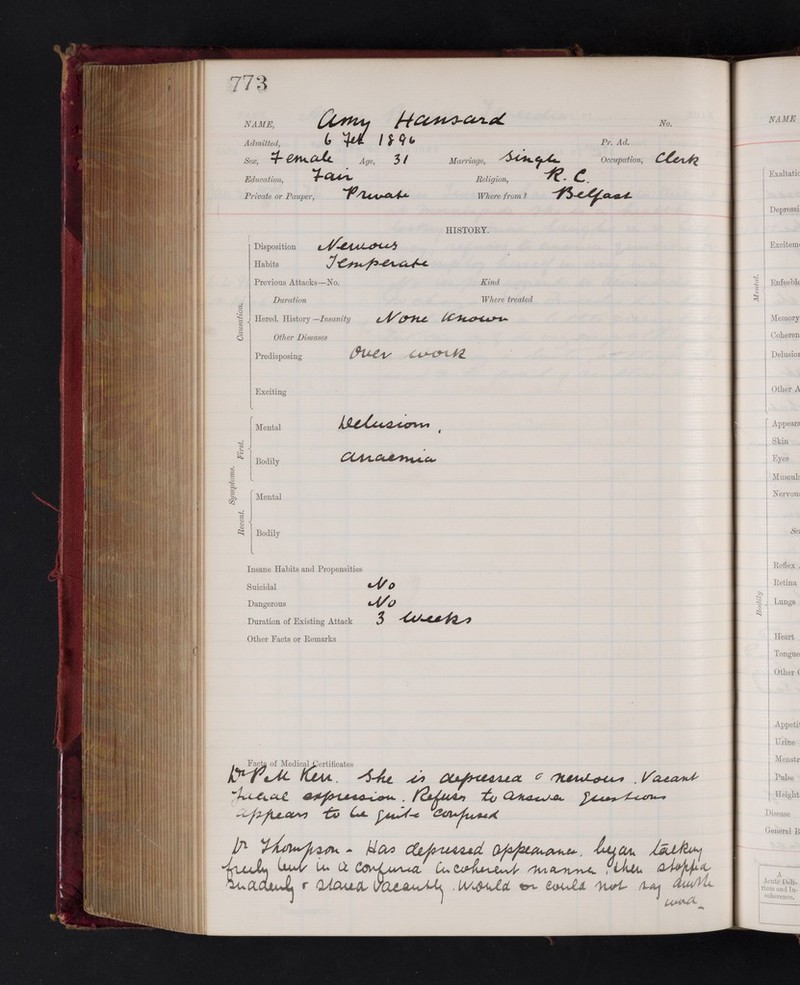 773
NAME, Amy Hansard No.
Admitted, 6 Feb 1896 Pr. Ad.
Sex, Female Age, 31 Marriage, Single Occupation, Clerk
Education, Fair Religion, R. C.
Private or Pauper, Private Where from? Belfast
HISTORY.
Causation.
Disposition Nervous
Habits Temperate
Previous Attacks—No. Kind
Duration Where treated
Hered. History—Insanity None known
Other Diseases
Predisposing Over work
Exciting
Symptoms.
First.
Mental Delusions,
Bodily Anaemia
Recent.
Mental
Bodily
Insane Habits and Propensities
Suicidal No
Dangerous No
Duration of Existing Attack 3 weeks
Other Facts or Remarks
Facts of Medical Certificates
Dr Kerr. She is depressed & nervous. Vacant
facial expression. Refuses to answer questions
appears to be quite confused
Dr Thompson - Has depressed appearance, began talking
freely but in a confused incoherent manner, then stopped
suddenly & stared vacantly. Would or could not say another
word_
NAME
Mental.
Exaltatio
Depressi
Exciteme
Enfeeble
Memory
Coheren
Delusion
Other A
Bodily
Appeara
Skin
Eyes
Muscula
Nervous
Se
Reflex
Retina
Lungs
Heart
Tongue
Other
Appetit
Urine
Menstr
Pulse
Height
Disease
General B
A
Acute Deli-
rious and In-
coherence.